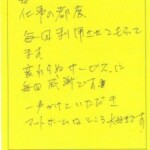 仕事の都度
毎回利用させてもらって
ます
変わらぬサービスに
毎回感謝です
一声かけていただき
アットホームなところ大好きです